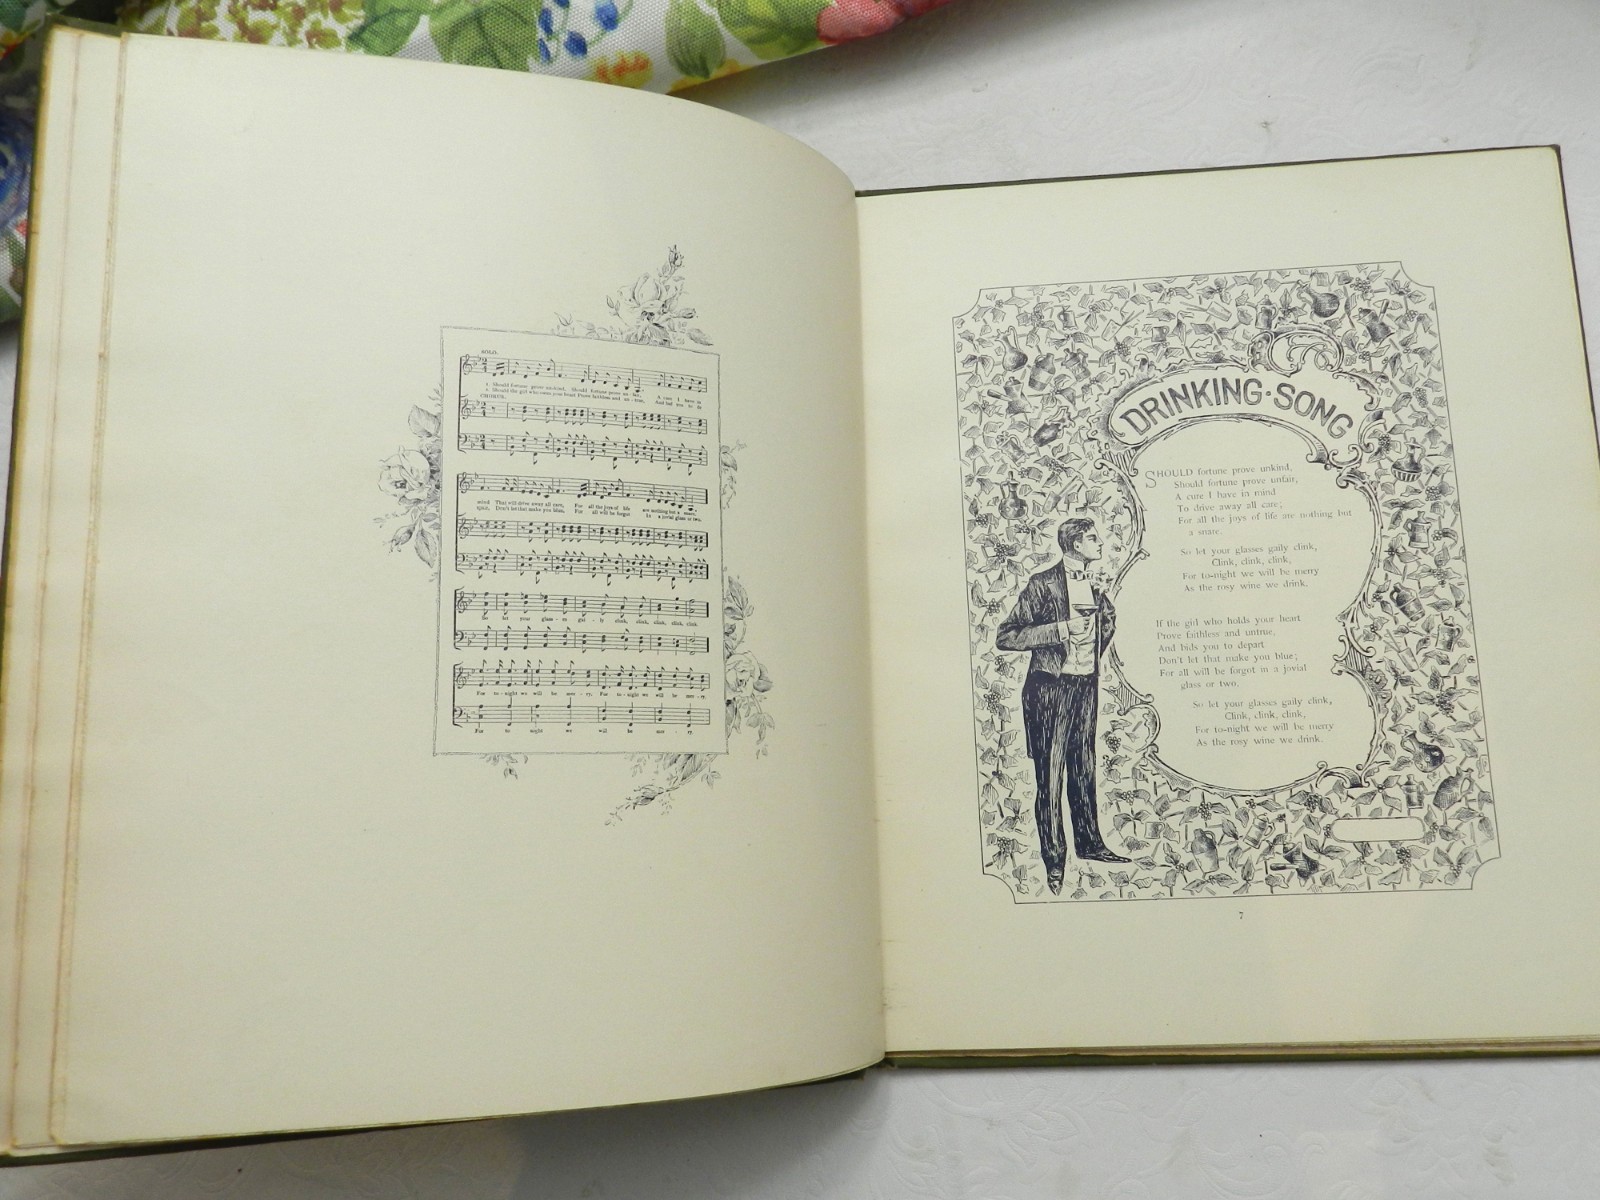 SOLO.
1. Should fortune prove unkind, Should fortune prove un-fair, A cure I have in
2. Should the girl who owns your heart Prove faithless and un-true, And bid you to de
CHORUS.
mind That will drive away all care, For all the joys of life are nothing but a snare.
spair, Don't let that make you blue, For all will be forgot In a jovial glass or two.
So let your glass-es gai-ly clink, clink, clink, clink, clink
For to-night we will be mer-ry, For to-night we will be mer-ry.
For to night we will be mer-ry.
DRINKING·SONG
SHOULD fortune prove unkind,
Should fortune prove unfair,
A cure I have in mind
To drive away all care;
For all the joys of life are nothing but
a snare.
So let your glasses gaily clink,
Clink, clink, clink,
For to-night we will be merry
As the rosy wine we drink.
If the girl who holds your heart
Prove faithless and untrue,
And bids you to depart
Don't let that make you blue;
For all will be forgot in a jovial
glass or two.
So let your glasses gaily clink,
Clink, clink, clink,
For to-night we will be merry
As the rosy wine we drink.
7